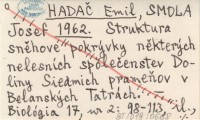 HADAČ Emil, SMOLA
Josef 1962. Struktura
sněhové pokrývky některých
nelesních společenstev Do-
liny Siedmich prameňov v
Belanských Tatrách. —
Biológia 17, nr 2: 98-113, il.